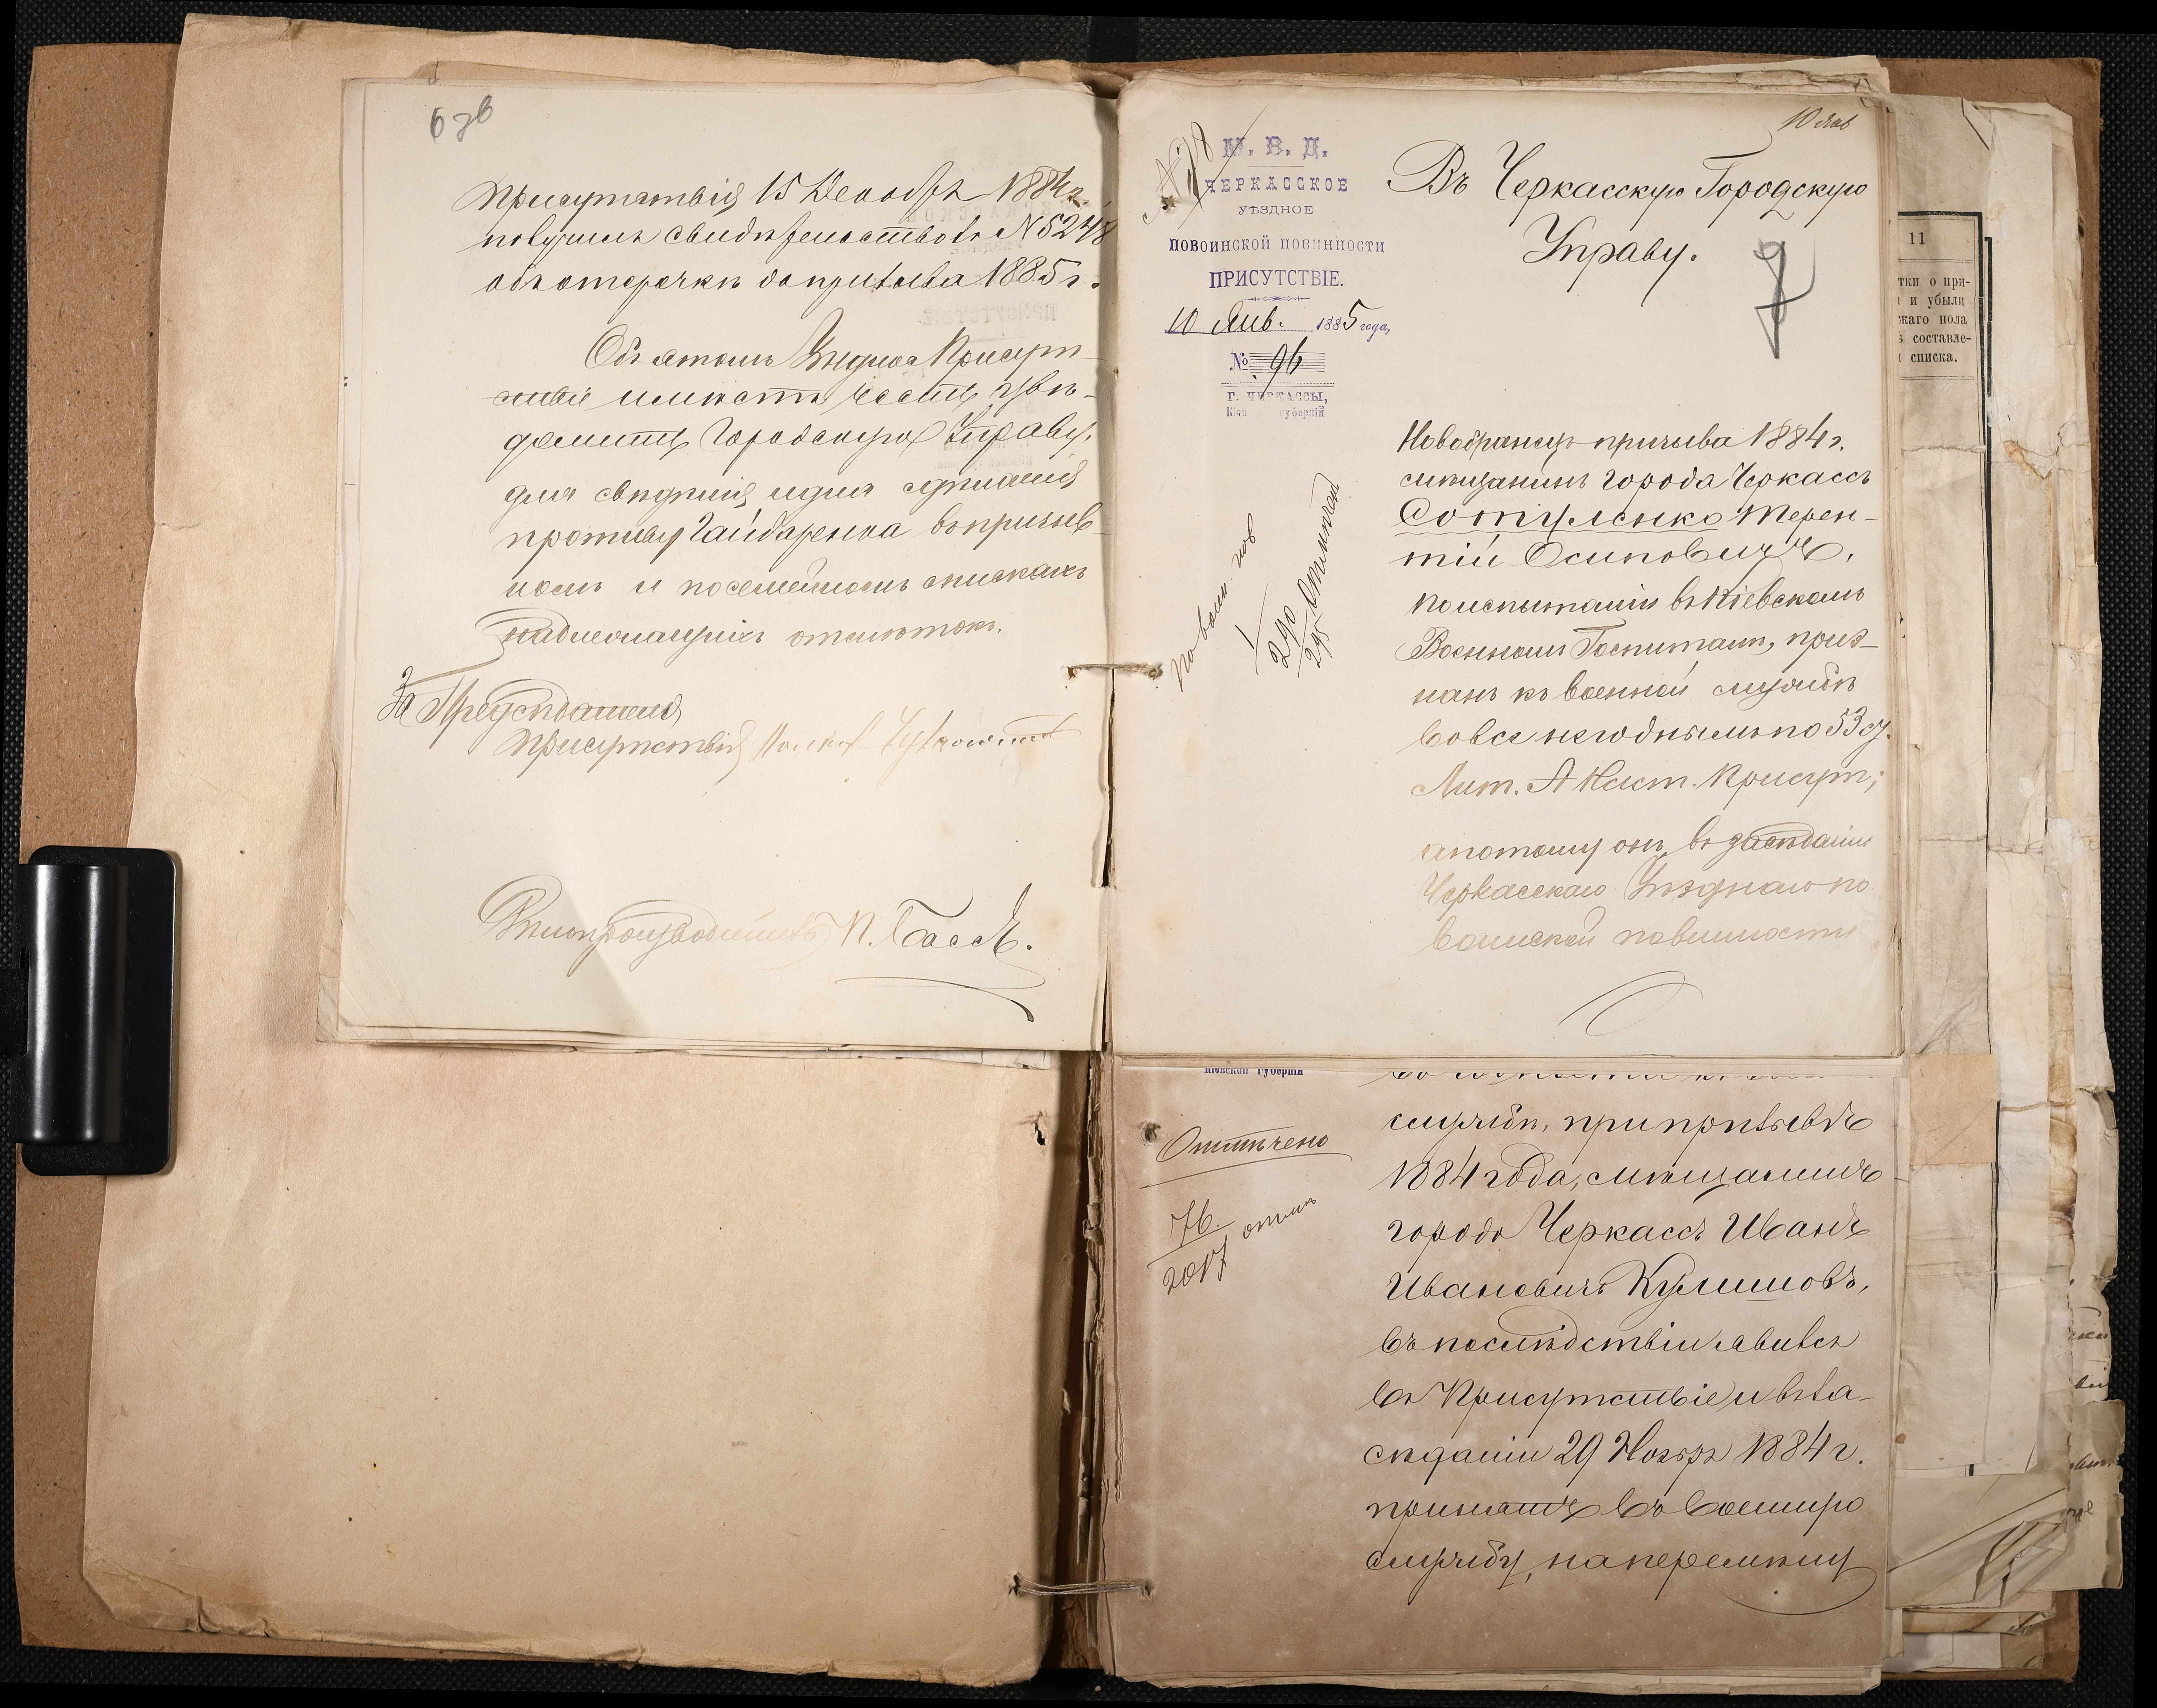 6 зв
Присутствія 15 Декабря 1884 г.
получилъ свидѣтельство № 5248
объ отсрочкѣ до призыва 1885 г.
Объ этомъ Уѣздное Присут-
ствіе имѣетъ честь увѣ-
домить Городскую Управу,
для свѣдѣнія и для сдѣланія
противу Гайдаренка въ призыв-
номъ и посемейномъ спискахъ
надлежащихъ отмѣтокъ.
За Предсѣдателя
Присутствія
Дѣлопроизводитель П. Бассъ.
10 Янв
М. В. Д.
ЧЕРКАССКОЕ
УѢЗДНОЕ
ПОВОИНСКОЙ ПОВИННОСТИ
ПРИСУТСТВІЕ.
10 Янв. 1885 года,
№ 96
Г. ЧЕРКАССЫ,
Кіев губерніи
Въ Черкасскую Городскую
Управу.
7
290
295
Отмѣчено
Новобранецъ призыва 1884 г.
мѣщанинъ города Черкассъ
Сотуленко Терен-
тій Осиповичъ,
по испытаніи въ Кіевскомъ
Военномъ Госпиталѣ, приз-
нанъ къ военной службѣ
вовсе негоднымъ по 53 ст.
Лит. А Наст. Присут.;
а потому онъ въ засѣданіи
Черкасскаго Уѣзднаго по
воинской повинности
Кіевской губерніи
Отмѣчено
76.
2017
отмѣч
службѣ, при призывѣ
1884 года, мѣщанинъ
города Черкассъ Иванъ
Ивановичъ Кулишовъ,
въ послѣдствіи явился
въ Присутствіе и въ за-
сѣданіи 29 Ноября 1884 г.
принятъ въ военную
службу, на перемѣну
11
тки о при-
и убыли
скаго пола
составле-
списка.